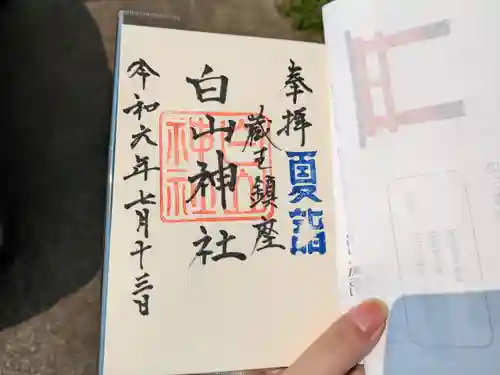 奉拝
夏詣
蔵王鎮座
白山神社
白山神社
令和六年七月十三日